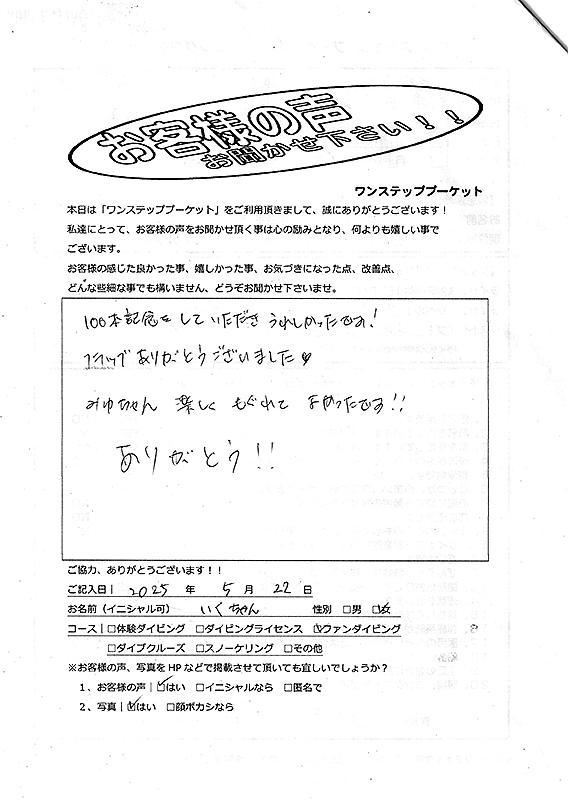 お客様の声
お聞かせ下さい！！
ワンステッププーケット
本日は「ワンステッププーケット」をご利用頂きまして、誠にありがとうございます！
私達にとって、お客様の声をお聞かせ頂く事は心の励みとなり、何よりも嬉しい事で
ございます。
お客様の感じた良かった事、嬉しかった事、お気づきになった点、改善点、
どんな些細な事でも構いません、どうぞお聞かせ下さいませ。
100本記念をしていただき うれしかったです！
フラッグありがとうございました♥
みゆちゃん 楽しく もぐれて よかったです！！
ありがとう！！
ご協力、ありがとうございます！！
ご記入日｜ 2025 年 5 月 22 日
お名前（イニシャル可） いくちゃん 性別 □男 ☑女
コース｜□体験ダイビング □ダイビングライセンス ☑ファンダイビング
□ダイブクルーズ □スノーケリング □その他
※お客様の声、写真を HP などで掲載させて頂いても宜しいでしょうか？
1、お客様の声｜☑はい □イニシャルなら □匿名で
2、写真｜☑はい □顔ボカシなら